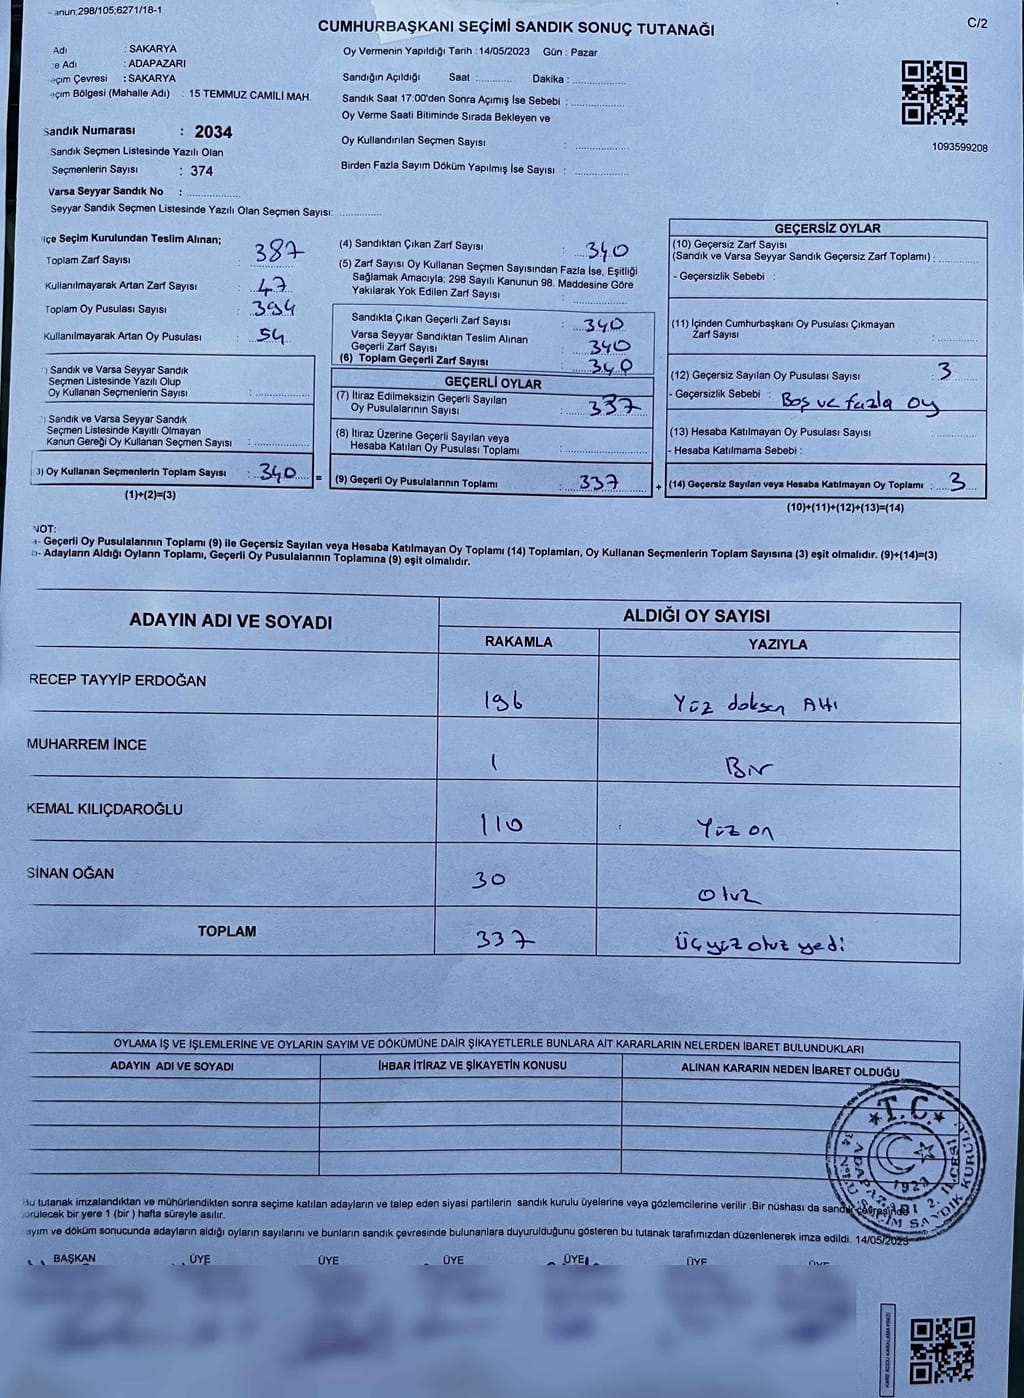 anun;298/105;6271/18-1
C/2
CUMHURBAŞKANI SEÇİMİ SANDIK SONUÇ TUTANAĞI
Adı : SAKARYA
e Adı : ADAPAZARI
eçim Çevresi : SAKARYA
eçim Bölgesi (Mahalle Adı) : 15 TEMMUZ CAMİLİ MAH.
Sandık Numarası : 2034
Sandık Seçmen Listesinde Yazılı Olan
Seçmenlerin Sayısı : 374
Varsa Seyyar Sandık No : ..............
Seyyar Sandık Seçmen Listesinde Yazılı Olan Seçmen Sayısı: ............
Oy Vermenin Yapıldığı Tarih : 14/05/2023 Gün : Pazar
Sandığın Açıldığı Saat : ............ Dakika : ................
Sandık Saat 17:00'den Sonra Açımış İse Sebebi : ................
Oy Verme Saati Bitiminde Sırada Bekleyen ve
Oy Kullandırılan Seçmen Sayısı : ................
Birden Fazla Sayım Döküm Yapılmış İse Sayısı : ................
1093599208
lçe Seçim Kurulundan Teslim Alınan;
Toplam Zarf Sayısı : 387
Kullanılmayarak Artan Zarf Sayısı : 47
Toplam Oy Pusulası Sayısı : 394
Kullanılmayarak Artan Oy Pusulası : 54
) Sandık ve Varsa Seyyar Sandık
Seçmen Listesinde Yazılı Olup
Oy Kullanan Seçmenlerin Sayısı : ................
) Sandık ve Varsa Seyyar Sandık
Seçmen Listesinde Kayıtlı Olmayan
Kanun Gereği Oy Kullanan Seçmen Sayısı : ................
3) Oy Kullanan Seçmenlerin Toplam Sayısı : 340 =
(1)+(2)=(3)
(4) Sandıktan Çıkan Zarf Sayısı : 340
(5) Zarf Sayısı Oy Kullanan Seçmen Sayısından Fazla İse, Eşitliği
Sağlamak Amacıyla; 298 Sayılı Kanunun 98. Maddesine Göre
Yakılarak Yok Edilen Zarf Sayısı : ................
Sandıkta Çıkan Geçerli Zarf Sayısı : 340
Varsa Seyyar Sandıktan Teslim Alınan
Geçerli Zarf Sayısı : 340
(6) Toplam Geçerli Zarf Sayısı : 340
GEÇERLİ OYLAR
(7) İtiraz Edilmeksizin Geçerli Sayılan
Oy Pusulalarının Sayısı : 337
(8) İtiraz Üzerine Geçerli Sayılan veya
Hesaba Katılan Oy Pusulası Toplamı : ................
(9) Geçerli Oy Pusulalarının Toplamı : 337 +
GEÇERSİZ OYLAR
(10) Geçersiz Zarf Sayısı
(Sandık ve Varsa Seyyar Sandık Geçersiz Zarf Toplamı) : ............
- Geçersizlik Sebebi :
(11) İçinden Cumhurbaşkanı Oy Pusulası Çıkmayan
Zarf Sayısı : ............
(12) Geçersiz Sayılan Oy Pusulası Sayısı : 3
- Geçersizlik Sebebi : Boş ve fazla oy
(13) Hesaba Katılmayan Oy Pusulası Sayısı ............
- Hesaba Katılmama Sebebi :
(14) Geçersiz Sayılan veya Hesaba Katılmayan Oy Toplamı : 3
(10)+(11)+(12)+(13)=(14)
NOT:
a- Geçerli Oy Pusulalarının Toplamı (9) ile Geçersiz Sayılan veya Hesaba Katılmayan Oy Toplamı (14) Toplamları, Oy Kullanan Seçmenlerin Toplam Sayısına (3) eşit olmalıdır. (9)+(14)=(3)
b- Adayların Aldığı Oyların Toplamı, Geçerli Oy Pusulalarının Toplamına (9) eşit olmalıdır.
ADAYIN ADI VE SOYADI
ALDIĞI OY SAYISI
RAKAMLA YAZIYLA
RECEP TAYYİP ERDOĞAN 196 Yüz doksan Altı
MUHARREM İNCE 1 Bir
KEMAL KILIÇDAROĞLU 110 Yüz on
SİNAN OĞAN 30 Otuz
TOPLAM 337 Üçyüz otuz yedi
OYLAMA İŞ VE İŞLEMLERİNE VE OYLARIN SAYIM VE DÖKÜMÜNE DAİR ŞİKAYETLERLE BUNLARA AİT KARARLARIN NELERDEN İBARET BULUNDUKLARI
ADAYIN ADI VE SOYADI İHBAR İTİRAZ VE ŞİKAYETİN KONUSU ALINAN KARARIN NEDEN İBARET OLDUĞU
T.C.
1923
Bu tutanak imzalandıktan ve mühürlendikten sonra seçime katılan adayların ve talep eden siyasi partilerin sandık kurulu üyelerine veya gözlemcilerine verilir .Bir nüshası da sandık çevresinde
görülecek bir yere 1 (bir ) hafta süreyle asılır.
ayım ve döküm sonucunda adayların aldığı oyların sayılarını ve bunların sandık çevresinde bulunanlara duyurulduğunu gösteren bu tutanak tarafımızdan düzenlenerek imza edildi. 14/05/2023
BAŞKAN ÜYE ÜYE ÜYE ÜYE ÜYE ÜYE